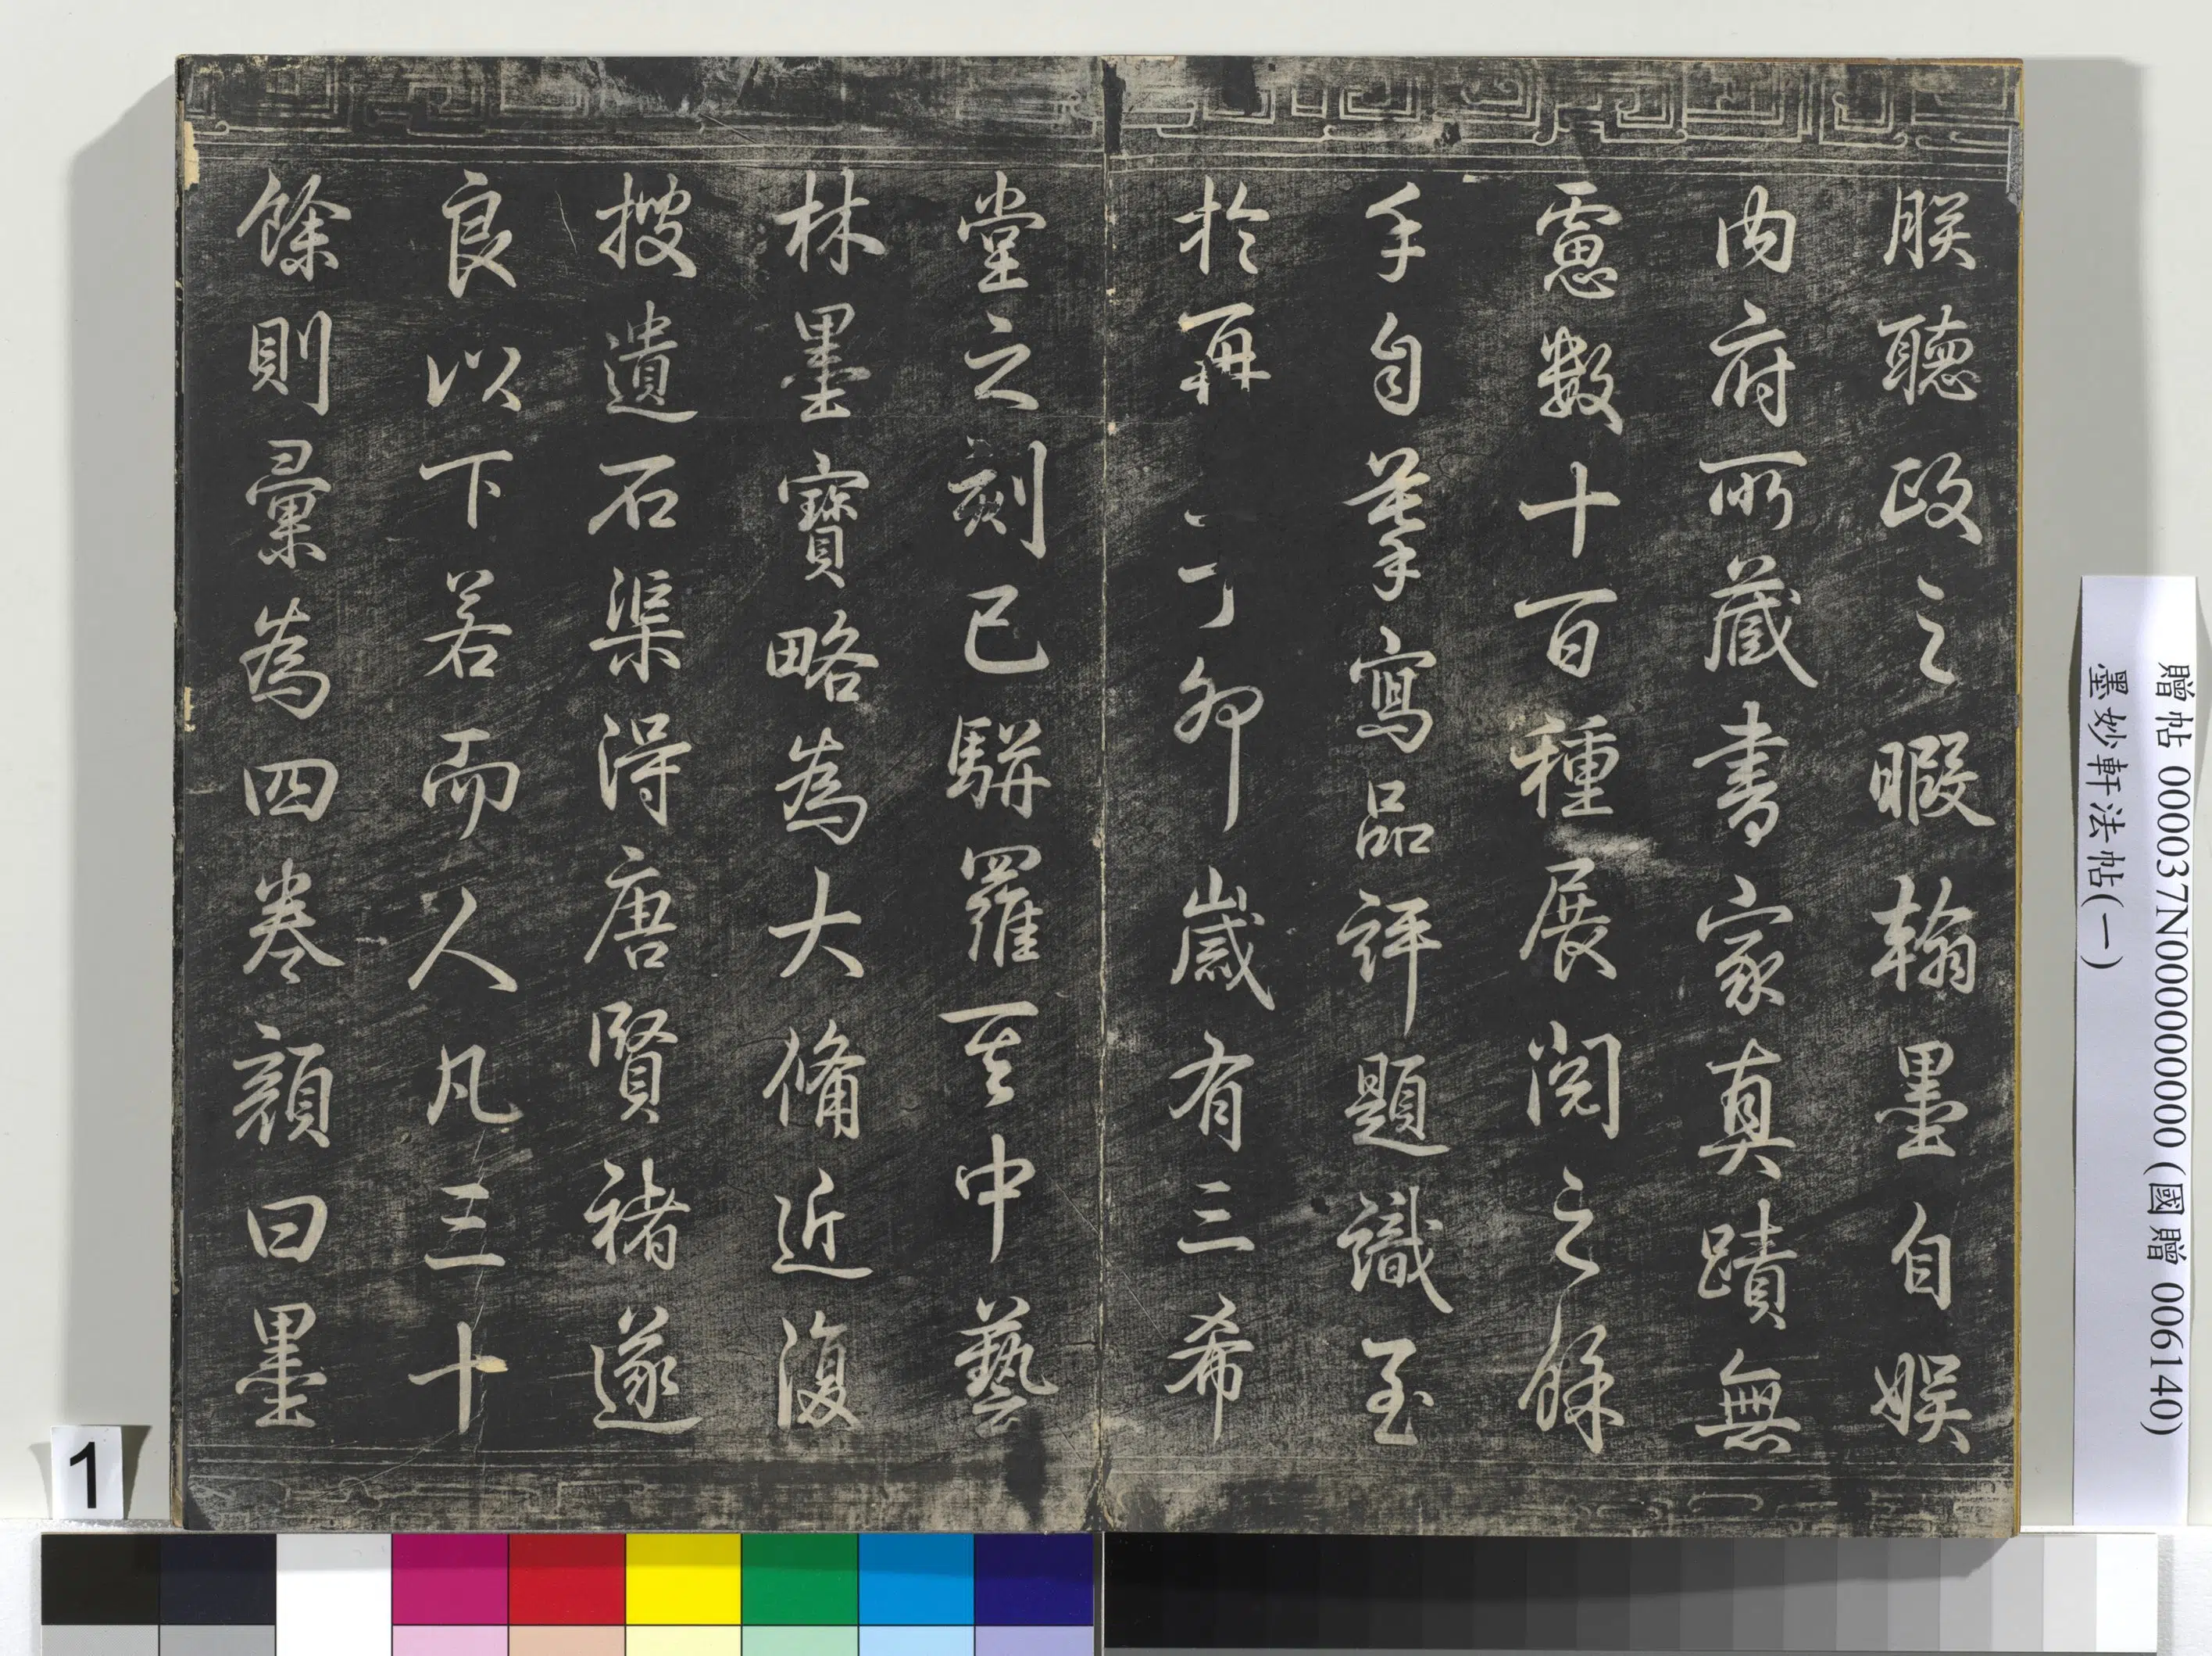 朕聽政之暇翰墨自娛
內府所藏書家真蹟無
慮數十百種展閱之餘
手自筆寫品評題識至
於再丁卯歲有三希
堂之刻已駢羅其中藝
林墨寶略為大備近復
搜遺石渠得唐賢褚遂
良以下若而人凡三十
餘則彙為四卷顏曰墨
贈帖 000037N000000000 (國贈 006140)
墨妙軒法帖(一)
1